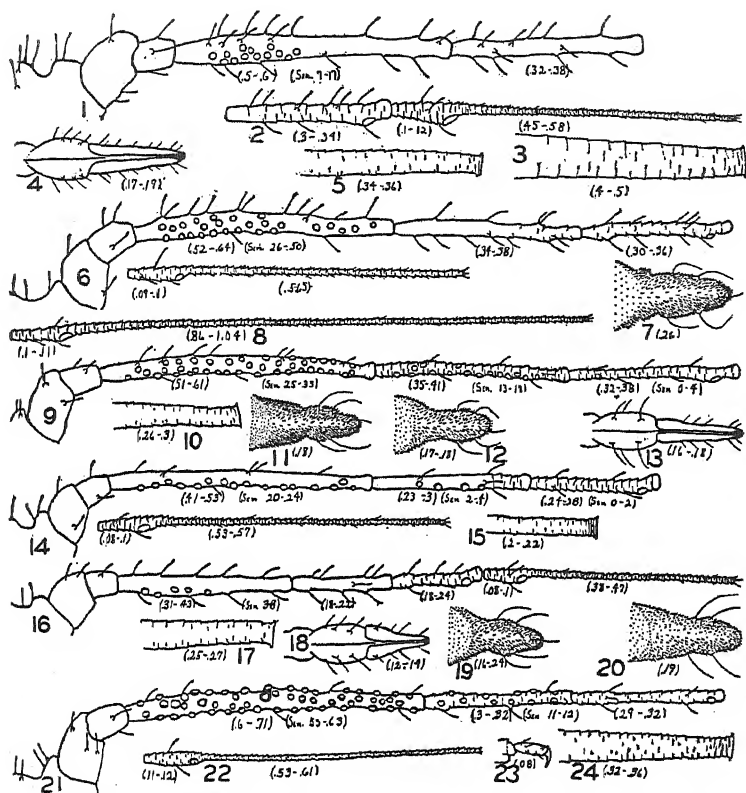 1 (.5-.6) (Sen. 9-17) (.32-.38)
2 (.3-.34) (.1-12) (.45-.58)
4 (.17-.19) 5 (.34-.36) 3 (.4-.5)
6 (.52-.64) (Sen. 26-50) (.34-.38) (.30-.36)
(.09-.1) (.565) 7 (.26)
(.1-.11) (.86-1.04) 8
9 (.51-.61) (Sen 25-33) (.35-.41) (Sen. 13-18) (.32-.38) (Sen 0-4)
10 (.26-.3) 11 (.18) 12 (.17-.18) 13 (.16-.18)
14 (.41-.53) (Sen 20-24) (.23-.3) (Sen 2-4) (.24-.28) (Sen 0-2)
(.08-.1) (.53-.57) 15 (.2-.22)
16 (.31-.43) (.18-.22) (.18-.24) (.08-.1) (.38-.47)
17 (.25-.27) 18 (.12-.14) 19 (.16-.24) 20 (.19)
21 (.6-.71) (Sen. 53-63) (.3-.32) (Sen 11-12) (.29-.32)
(.11-.12) 22 (.53-.61) 23 (.08) 24 (.32-.36)